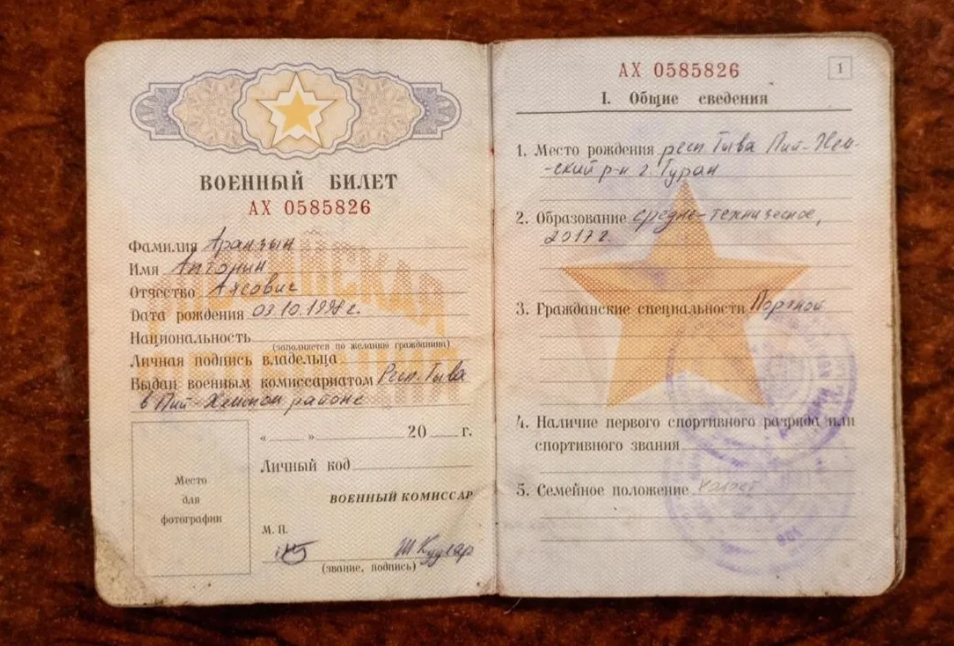 ВОЕННЫЙ БИЛЕТ
АХ 0585826
РОССИЙСКАЯ
ФЕДЕРАЦИЯ
Фамилия
Имя
Отчество Аясович
Дата рождения 03.10.1998г.
Национальность
(заполняется по желанию гражданина)
Личная подпись владельца
Выдан военным комиссариатом Респ. Тыва
в Пий-Хемском районе
« » 20 г.
Личный код
Место
для
фотографии
ВОЕННЫЙ КОМИССАР
М. П.
Ш Куулар
(звание, подпись)
АХ 0585826
1
I. Общие сведения
1. Место рождения респ. Тыва Пий-Хем-
-ский р-н г. Туран
2. Образование средне-техническое,
2017г.
3. Гражданские специальности Портной
4. Наличие первого спортивного разряда или
спортивного звания
5. Семейное положение холост